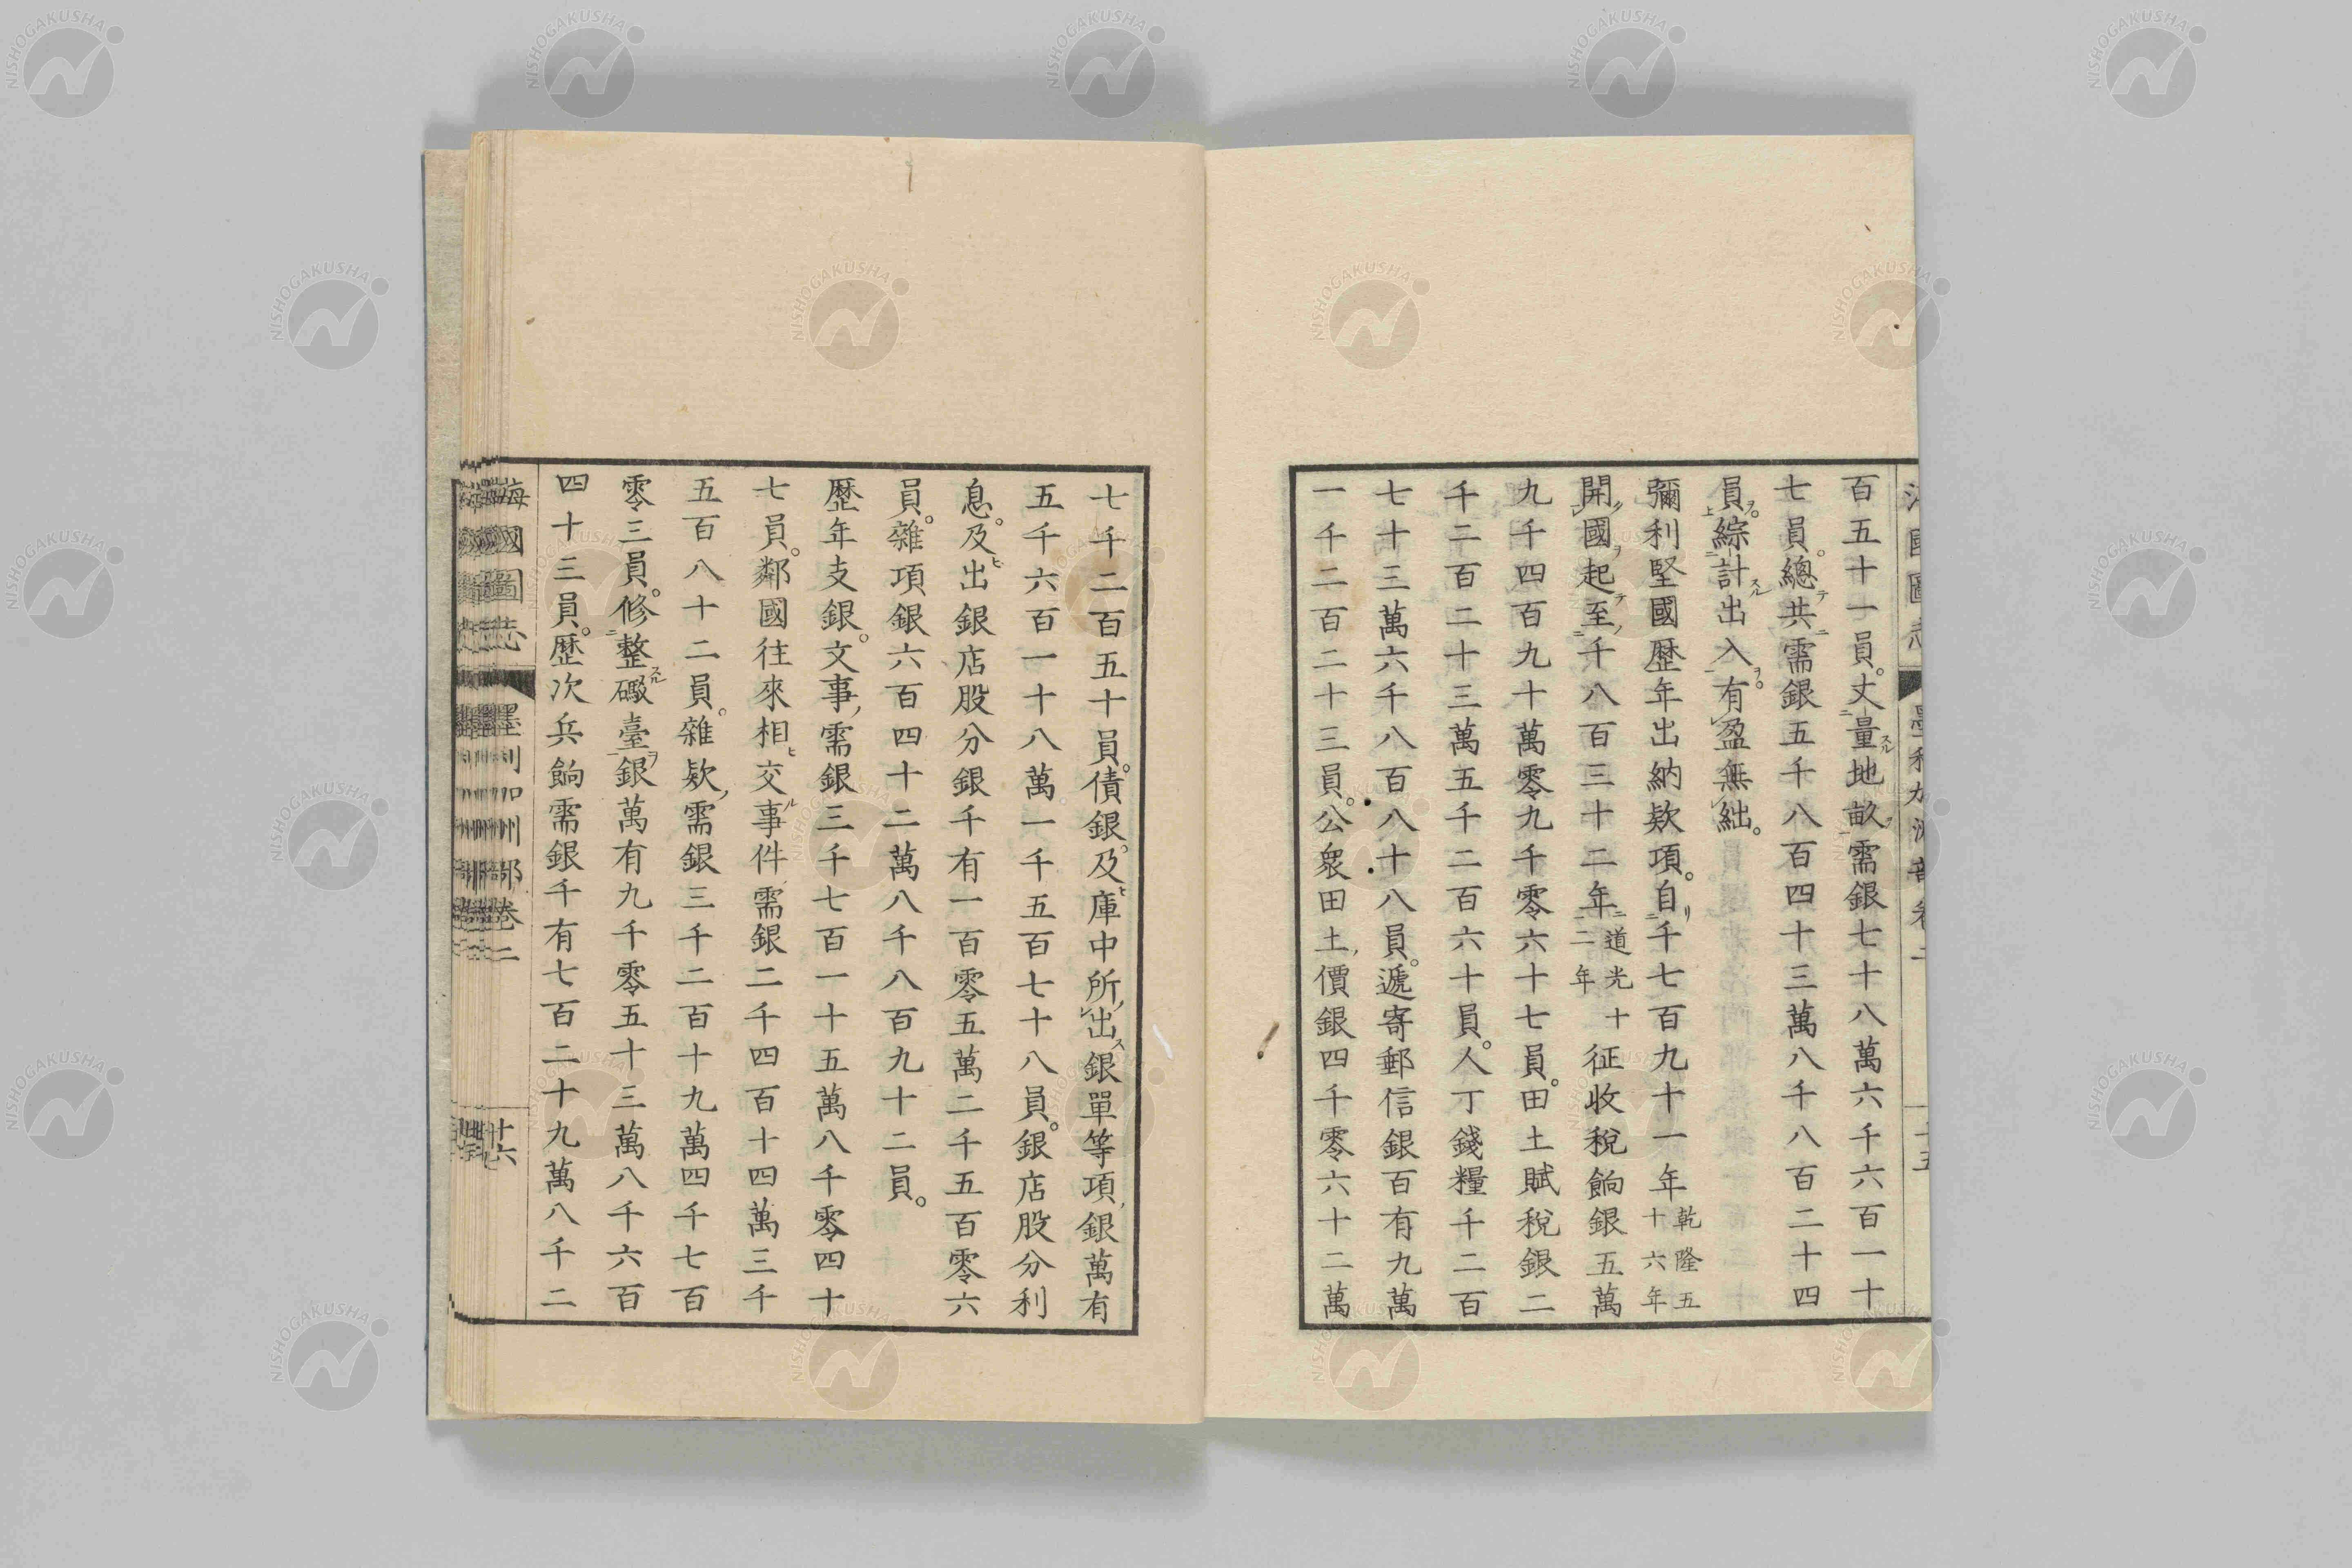 百五十一員。丈量地畝需銀七十八萬六千六百一十
七員。總共需銀五千八百四十三萬八千八百二十四
員。綜計出入有盈無絀。
彌利堅國歷年出納欵項。自千七百九十一年乾隆五十六年
開國起至千八百三十二年道光十二年征收稅餉銀五萬
九千四百九十萬零九千零六十七員。田土賦稅銀二
千二百二十三萬五千二百六十員。人丁錢糧千二百
七十三萬六千八百八十八員。遞寄郵信銀百有九萬
一千二百二十三員。公衆田土價銀四千零六十二萬
七千二百五十員。債銀及庫中所出銀單等項銀萬有
五千六百一十八萬一千五百七十八員。銀店股分利
息。及出銀店股分銀千有一百零五萬二千五百零六
員。雜項銀六百四十二萬八千八百九十二員。
歷年支銀。文事需銀三千七百一十五萬八千零四十
七員。鄰國往來相交事件需銀二千四百十四萬三千
五百八十二員。雜欵需銀三千二百十九萬四千七百
零三員。修整礮臺銀萬有九千零五十三萬八千六百
四十三員。歷次兵餉需銀千有七百二十九萬八千二
海國圖志 墨利加洲部卷二 十六
NISHOGAKUSHA